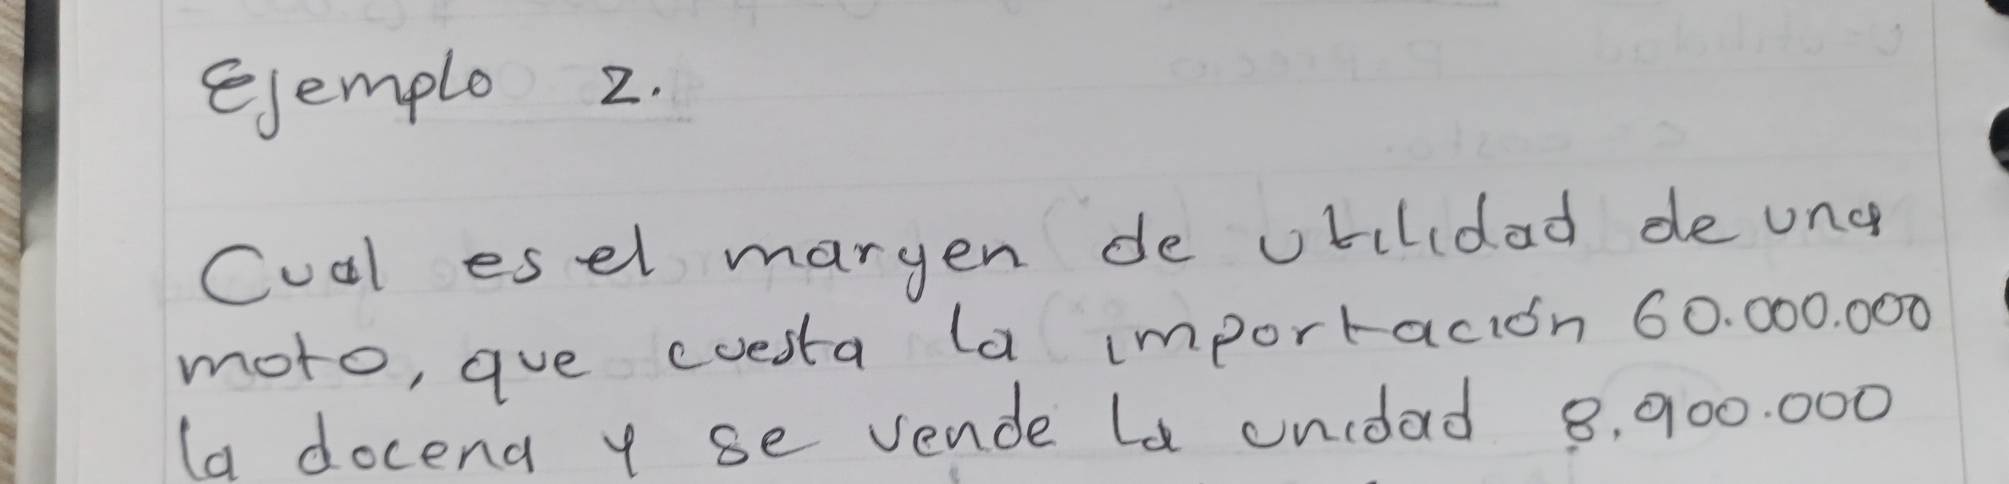 Ejemplo 2.
Cual es el margen de utilidad de una
moto, que cuesta la importación 60.000.000
la docena y se vende la unidad 8.900.000